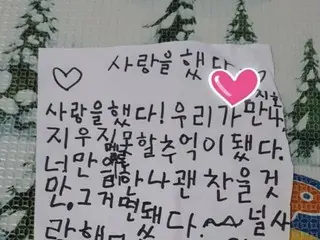 사랑을 했다
사랑을했다! 우리가 만나
지우지못할추억이됐다.
너만 괜찬을것
만. 그거면됐다.~~널사